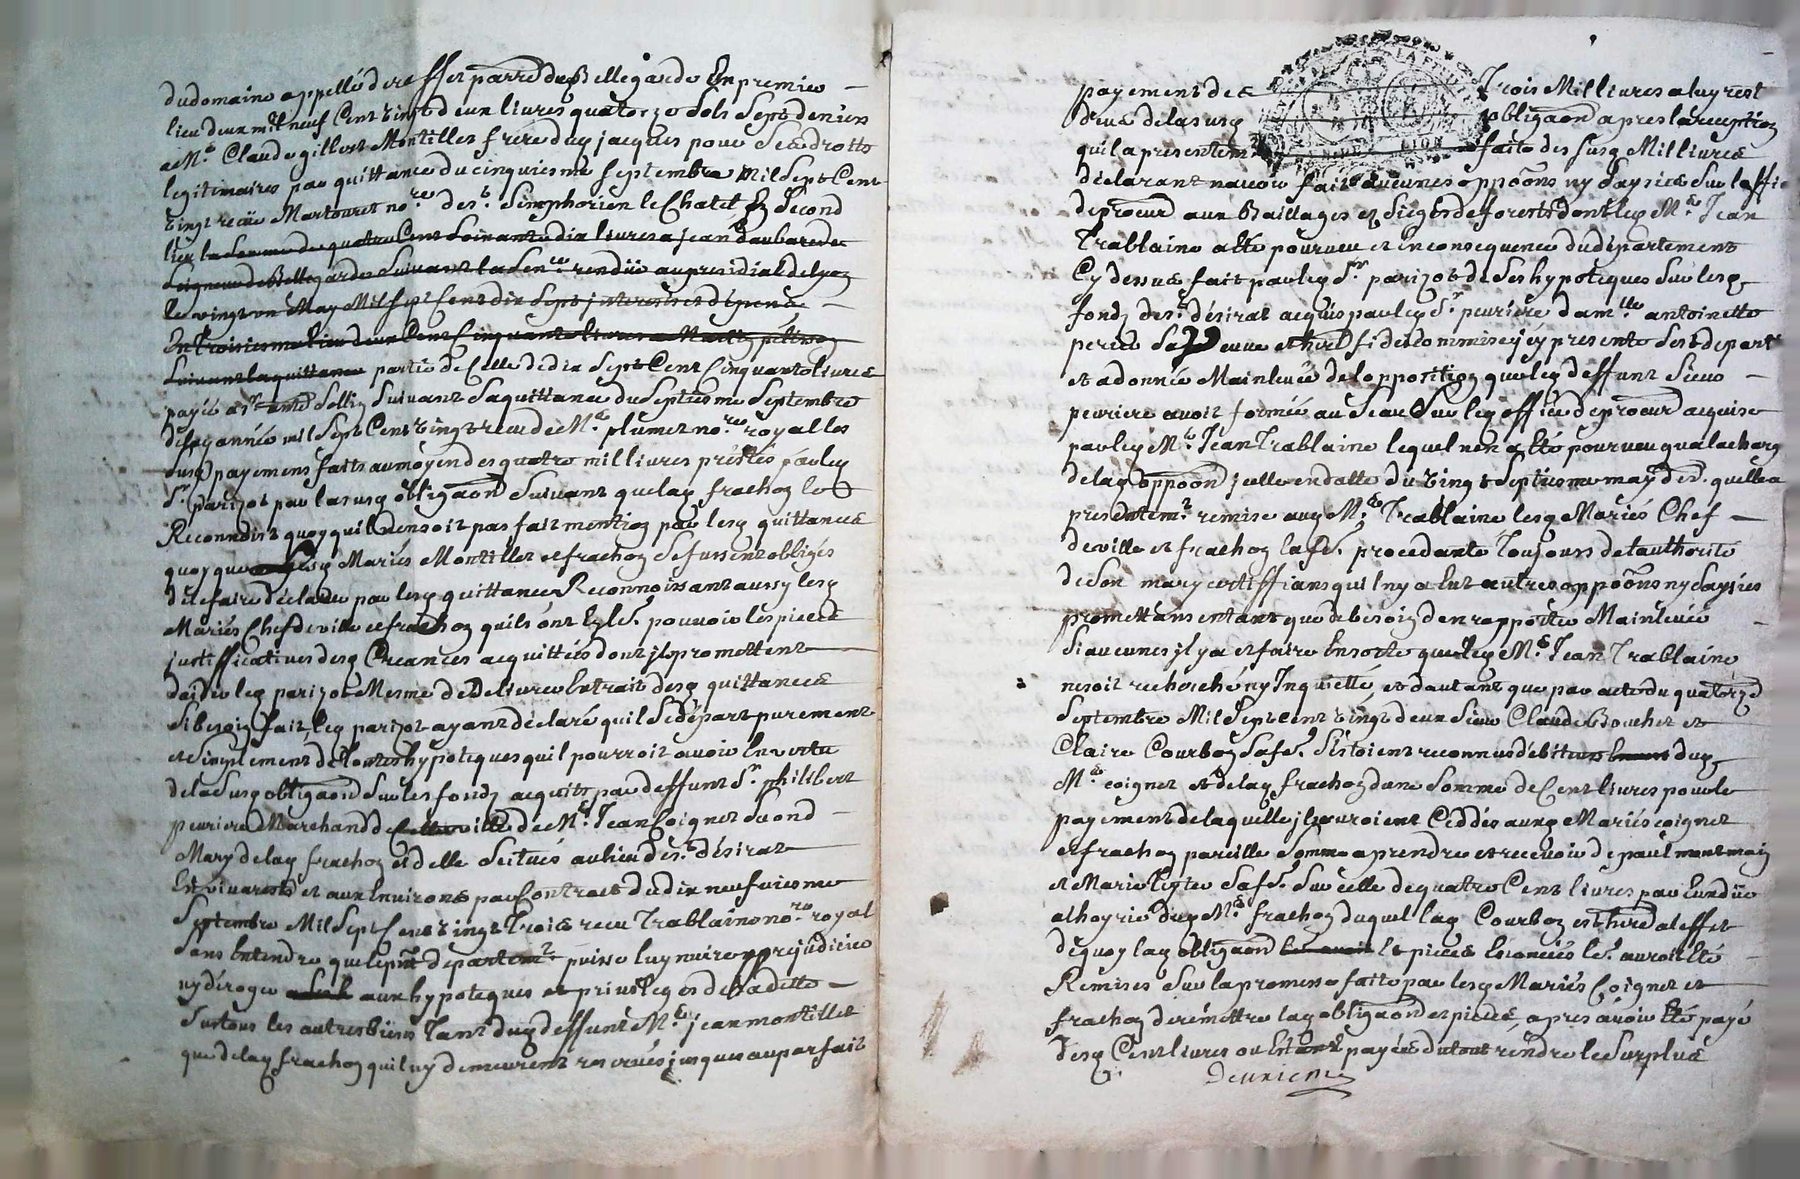 dudomaine appellé de effet parred duq Bellegarde En premier
lieu deux mil neuf Cent vingt deux livres quatorze sols Sept deniers
a Me. Claude gilbert Montillet frere duq jacques pour Ses droits
legitimaires par quittance du cinquiesme Septembre Mil Sept Cent
vingt receue Martouret nore. de st. Simphorien le Chatel En Second
lieu la Somme de quatre Cent Soixante dix livres a jean daubarede
Seigneur de Bellegarde Suivant la Sence rendüe au presidial de lyon
le vingt un May Mil Sept Cent dix Sept interests et dépens
En troisiesme lieu deux Cent Cinquante livres a
Suivant la quittance partie de Celle de dix Sept Cent Cinquante livres
payée a Sr. amé Sollin Suivant Sa quittance du Septiesme Septembre
de lad année mil Sept Cent vingt receue de Me. plumet nore. royal les
susq payemens faits au moyen des quatre mil livres prestés par leq
Sr. parizot par la susq obligaon Suivant que laq frachon le
Reconnoist quoy quil nen soit pas fait mention par lesq quittances
quoy que lesq Mariés Montillet et frachon Se fussent obligés
de le faire déclarer par lesq quittances Reconnoissant aussy lesq
Mariés Chefdeville et frachon quils ont pouvoir les pieces
justifficatives desq Creances acquittées dont ils promettent
daider leq parizot Mesme de delivrer Extrait desq quittances
Si besoin fait leq parizot ayant déclaré quil Se départ purement
et Simplement de toutes hypoteques quil pourroit avoir En vertu
de la Susq obligaon Sur les fonds acquits par deffunt Sr. philibert
peuriere Marchand de ville de Me. Jean Coignet Second
Mary de laq frachon et delle Scitués au lieu de st. désirat
En vivarests et aux Environs par Contract du dix neufviesme
Septembre Mil Sept Cent vingt Trois receu Trablaine nore. royal
Sans Entendre que le pnt departemt. puisse luy nuire prejudicier
ny déroger aux hypoteques et privileges de Sadite
Sur tous les autres biens Tant duq deffunt Me. jean montillet
que de laq frachon quil uy demeurent reservés jusques au parfait
payement des Trois Mil livres a luy rest
deue de la susq obligaon apres la reception
quil a presentemt faite des susq Mil livres
déclarant navoir fait aucunes oppoons ny Saysies Sur loffice
de procur aux Baillages et Sieges de forests dont leq Me. Jean
Trablaine a esté pourveu et en consequence du département
Cy dessus fait par leq Sr. parizot de Ses hypoteques Sur lesq
fonds de st. désirat acquis par leq Sr. peuriere damlle. antoinette
perier Sa veuve et hered fideicommise icy presente Sest departi
et a donnée Mainlevée de lopposition que leq deffunt Sieur
peuriere avoit formée au Seau Sur leq office de procur acquise
par leq Me. Jean Trablaine lequel nen a esté pourveu qua la charge
de laq oppoon icelle en datte du vingt Septiesme may der. quelle a
presentemt. remise auq Me. Trablaine lesq Mariés Chef
deville et frachon lafe. procedante Toujours de lauthorité
de Son mary certiffians quil ny a Eut autres oppoons ny Saysies
promettans en tant que de besoin den rapporter Mainlevée
Si aucunes il y a et faire En sorte que leq Me. Jean Trablaine
ne soit recherché ny Inquietté, et dautant que par acte du quatorze
Septembre Mil Sept cent vingt deux Sieur Claude Bouchet et
Claire Courbon Safe. Sestoient reconnus debiteurs duq
Me. coignet et de laq frachon dune Somme de Cent livres pour le
payement de laquelle ils auroient Ceddés auxq Mariés coignet
et frachon pareille Somme a prendre et recevoir de paul montmain
et Marie Safe. Sur celle de quatre Cent livres par Eux düe
a lhoyrie duq Me. frachon duquel laq Courbon est hered a leffet
de quoy laq obligaon et pieces Enoncées le. auroit Eté
Remises Sur la promesse faite par lesq Mariés Coignet et
frachon de rémettre laq obligaon et pieces, apres avoir Eté payé
desq Cent livres ou Estant payées du tout rendre le Surplus
Deuxieme